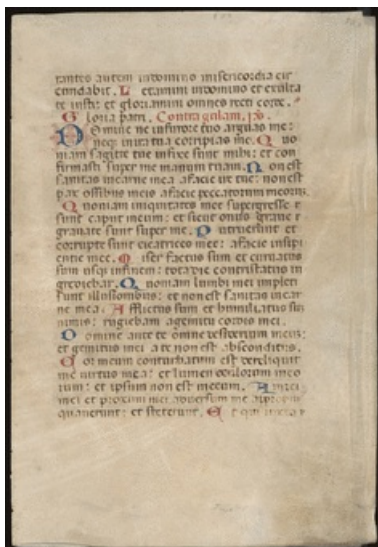 rantes autem in domino misericordia cir
cundabit. Letamini in domino et exulta
te iusti: et gloriamini omnes recti corde.
Gloria patri. Contra gulam. ps.
Domine ne in furore tuo arguas me:
neqi in ira tua corripias me. Quo
niam sagitte tue infixe sunt mihi: et con
firmasti super me manum tuam. Non est
sanitas in carne mea afacie ire tue: non est
pax ossibus meis afacie peccatorum meorum
Quoniam iniquitates mee supergresse
sunt caput meum: et sicut onus grave
gravate sunt super me. Putruerunt et
corrupte sunt cicatrices mee: afacie insipi
entie mee. Miser factus sum et curvatus
sum usqi in finem: tota die contristatus in
grediebar. Quoniam lumbi mei impleti
sunt illusionibus: et non est sanitas in car
ne mea. Afflictus sum et humiliatus su
nimis: rugiebam agemitu cordis mei.
Domine ante te omne desiderium meum:
et gemitus mei a te non est absconditus.
Cor meum conturbatum est dereliquit
me virtus mea: et lumen oculorum meo
rum: et ipsum non est mecum. Amici
mei et proximi mei adversum me
quaverunt: et steterunt. Et qui